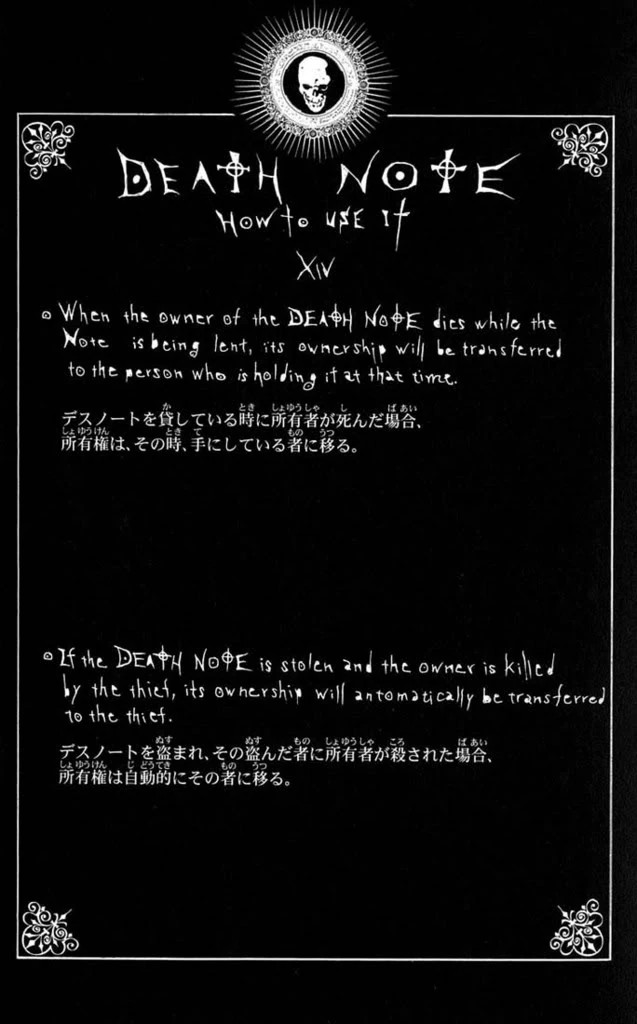 DEATH NOTE
HOW to USE It
XIV
When the owner of the DEATH NOTE dies while the
Note is being lent, its ownership will be transferred
to the person who is holding it at that time.
デスノートを貸している時に所有者が死んだ場合、
所有権は、その時、手にしている者に移る。
If the DEATH NOTE is stolen and the owner is killed
by the thief, its ownership will automatically be transferred
to the thief.
デスノートを盗まれ、その盗んだ者に所有者が殺された場合、
所有権は自動的にその者に移る。